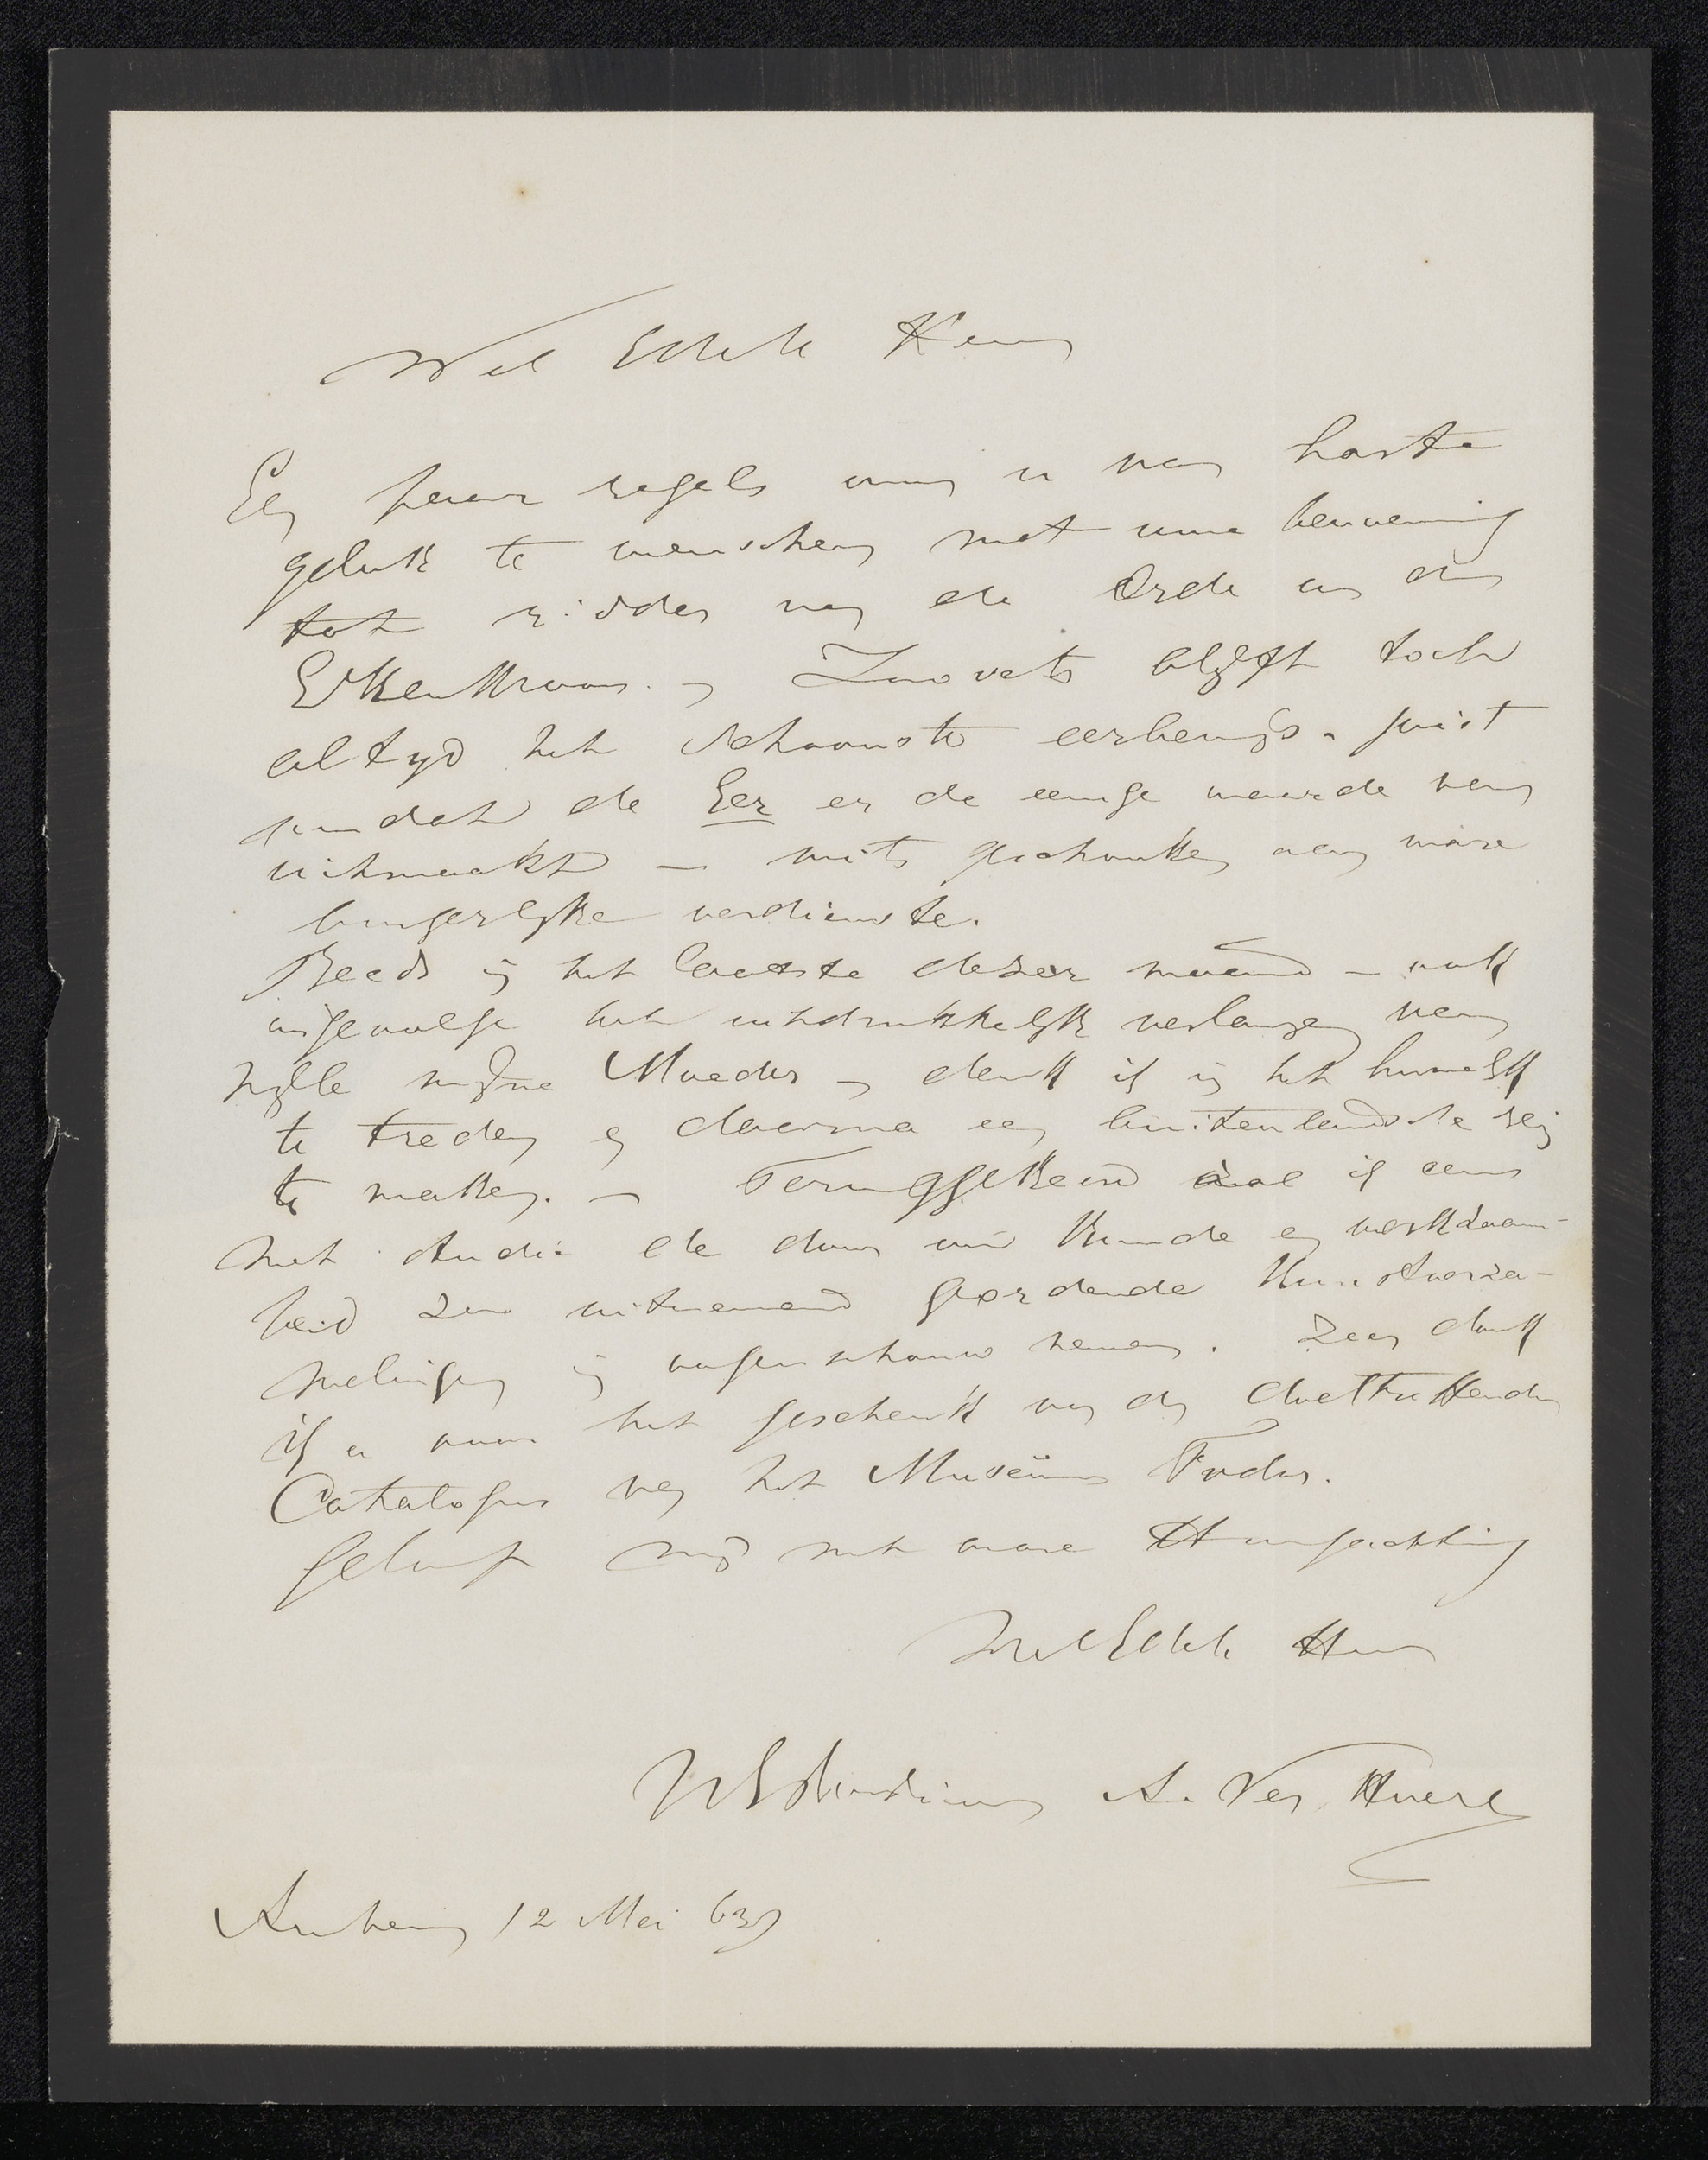 Wel Edele Heer
Een paar regels om u van harte
geluk te wenschen met uwe benoeming
tot ridder van de Orde van den
Eikenkroon. – Zoo iets blijft toch
altijd het schoonste eerbewijs – juist
omdat de Eer er de eenige waarde van
uitmaakt – mits geschonken aan ware
burgerlijke verdienste.
Reeds in het laatste dezer maand – ook
ingevolge het uitdrukkelijk verlangen van
wijle mijne Moeder – denk ik in het huwelijk
te treden en daarna een buitenlandsche reis
te maken. – Teruggekeerd zal ik eens
met studie de door uw kunde en werkzaam-
heid zoo uitnemend geordende Kunstverza-
melingen in oogenschouw nemen. Zeer dank
ik u voor het geschenk van den doeltreffenden
Catalogus van het Museüm Fodor.
Geloof mij met ware Hoogachting
WelEdele Heer
UEdDienstw. A. Ver Huell
Arnhem 12 Mei 63